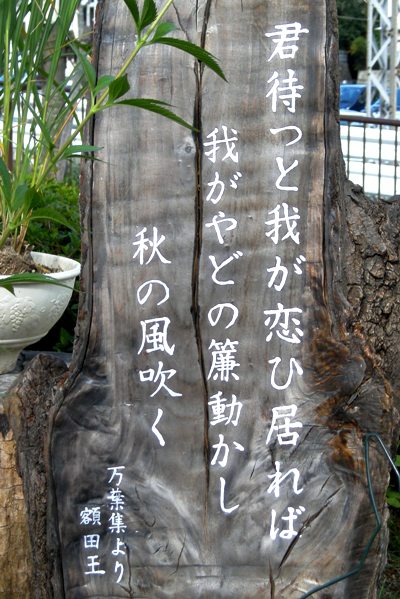 君待つと我が恋ひ居れば
我がやどの簾動かし
秋の風吹く
万葉集より
額田王